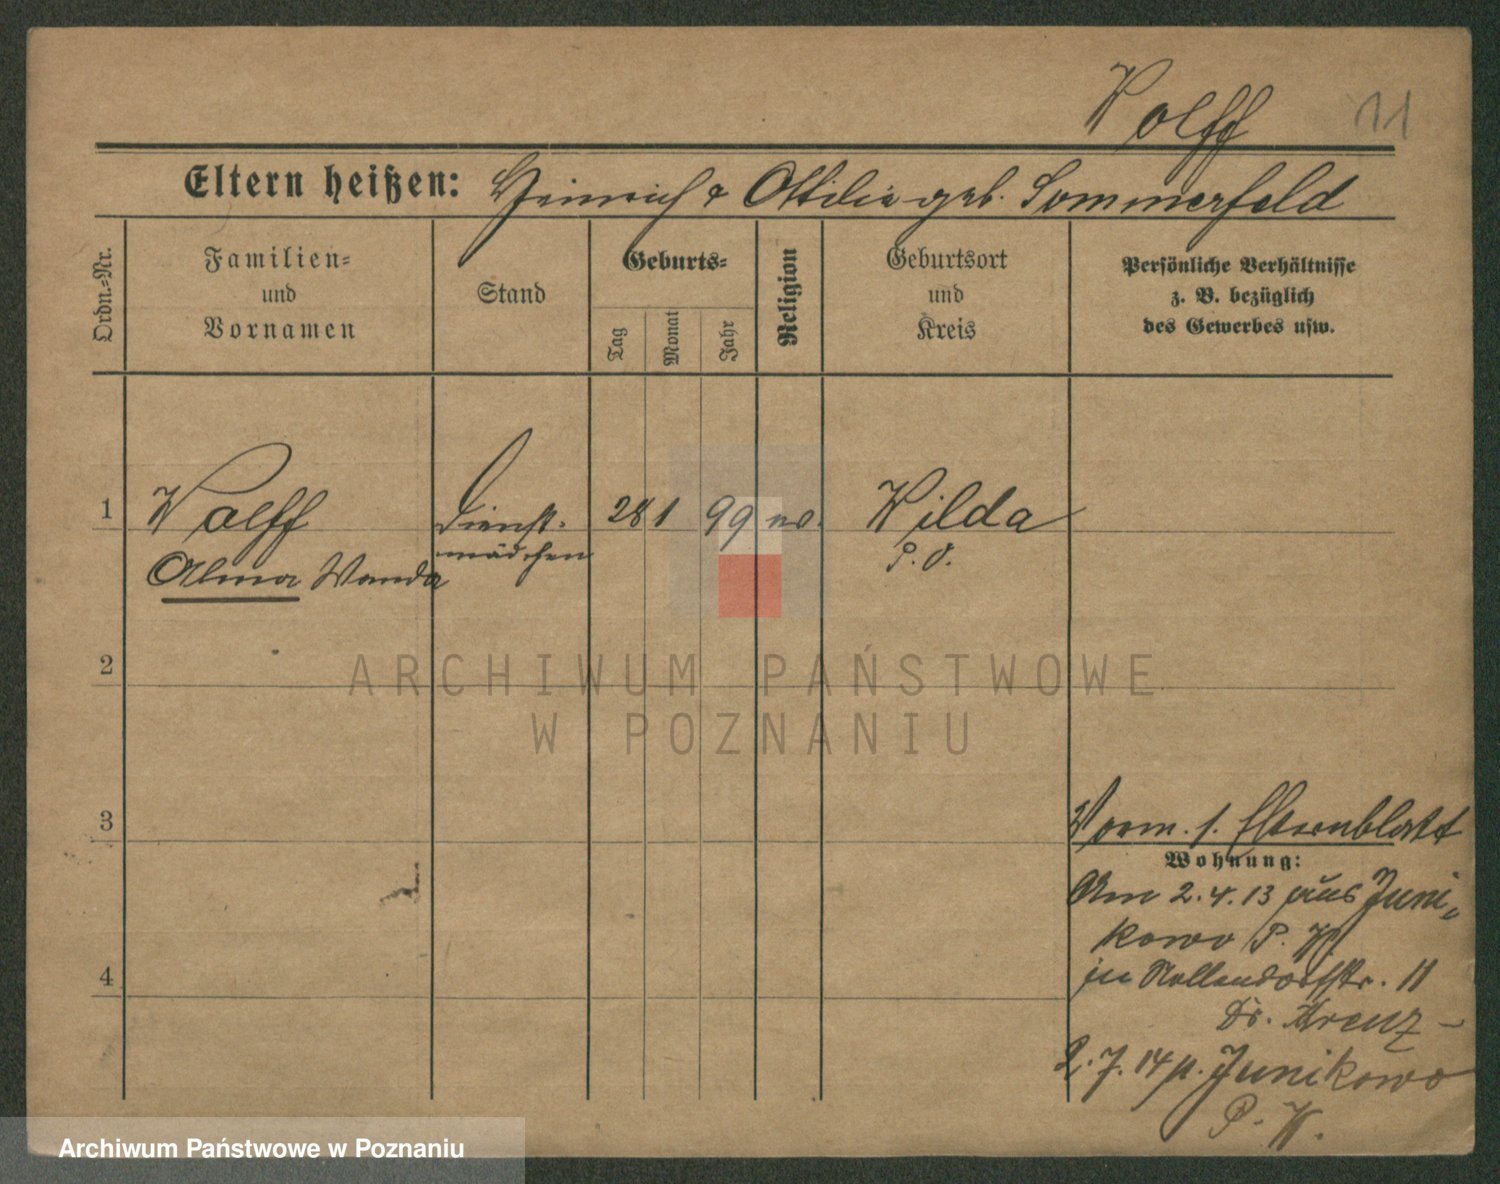 Wolff 11
Eltern heißen: Heinrich & Ottilie geb. Sommerfeld
Ordn.-Nr.
Familien-
und
Vornamen
Stand
Geburts-
Tag
Monat
Jahr
Religion
Geburtsort
und
Kreis
Persönliche Verhältnisse
z. B. bezüglich
des Gewerbes usw.
1 Wolff Dienst- 28 1 99 ev. Wilda
Alma Wanda mädchen P. O.
2
3
4
Vorm. s. Elternblatt
Wohnung:
Am 2.4.13 aus Juni-
kowo P. W.
in Nollendorfstr. 11
Dr. Krenz –
2.7.14 n. Junikowo
P. W.
ARCHIWUM PAŃSTWOWE
W POZNANIU
Archiwum Państwowe w Poznaniu